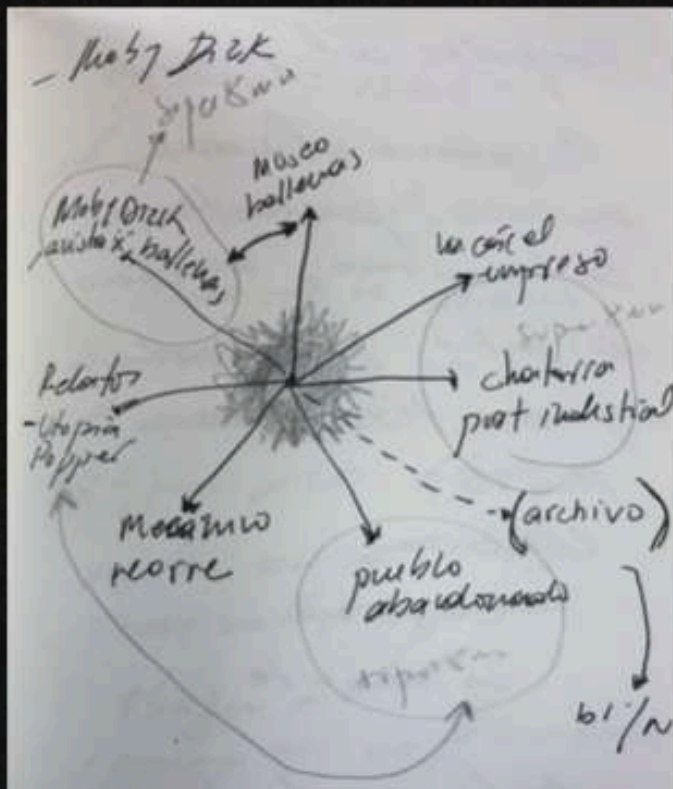 - Moby Dick
Super 8mm
Museo
ballenas
Moby Dick
ballenas
impreso
Super 8mm
chatarra
post industrial
Relatos
-Utopia
Popper
(archivo)
Mecanico
recorre
pueblo
abandonado
Super 8mm
bl/N